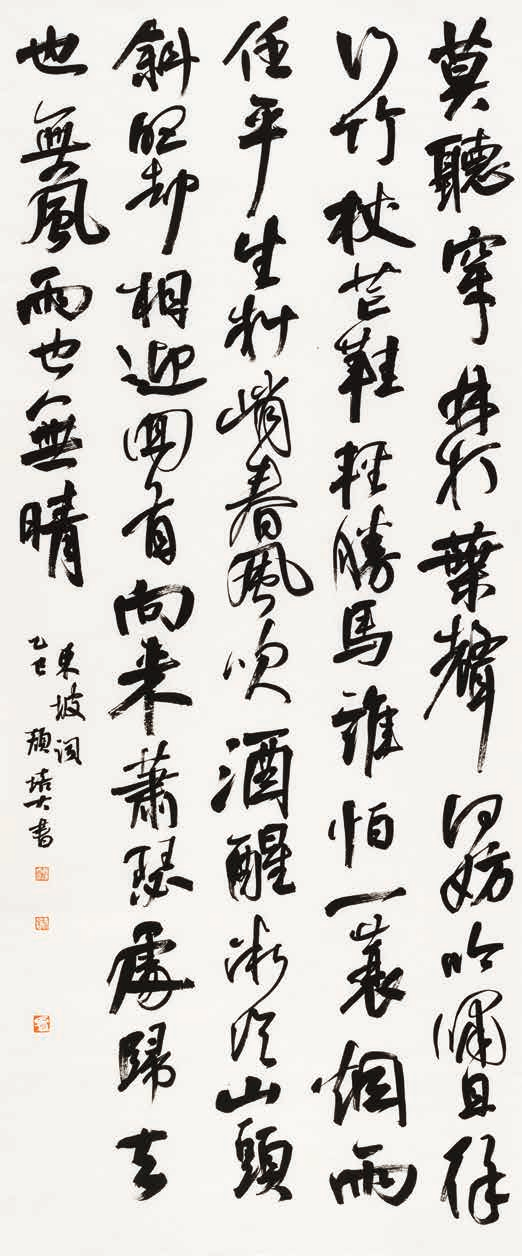 莫聽穿林打葉聲何妨吟嘯且徐
行竹杖芒鞋輕勝馬誰怕一蓑烟雨
任平生料峭春風吹酒醒微冷山頭
斜照却相迎回首向来蕭瑟處歸去
也無風雨也無晴
東坡词
乙巳顏培大書